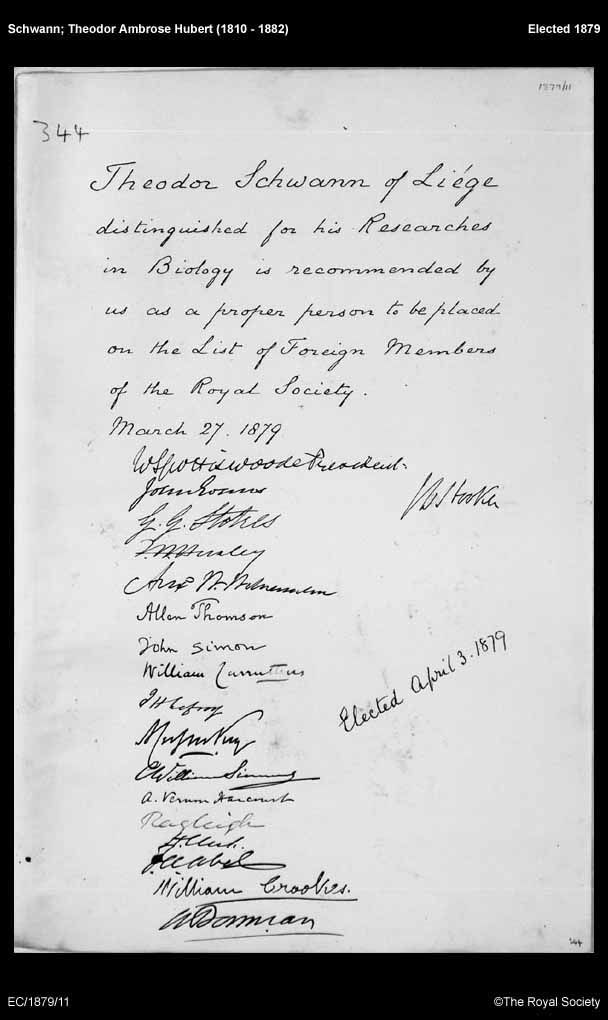 Schwann; Theodor Ambrose Hubert (1810 - 1882)
Elected 1879
1879/11
344
Theodor Schwann of Liége
distinguished for his Researches
in Biology is recommended by
us as a proper person to be placed
on the List of Foreign Members
of the Royal Society.
March 27. 1879
W Spottiswoode President.
John Evans
J D Hooker
G. G. Stokes
T. H. Huxley
Alex W. Williamson
Allen Thomson
John Simon
William Carruthers
J H Lefroy
C William Siemens
A. Vernon Harcourt
Rayleigh
F. A Abel
William Crookes.
Elected April 3. 1879
344
EC/1879/11
©The Royal Society